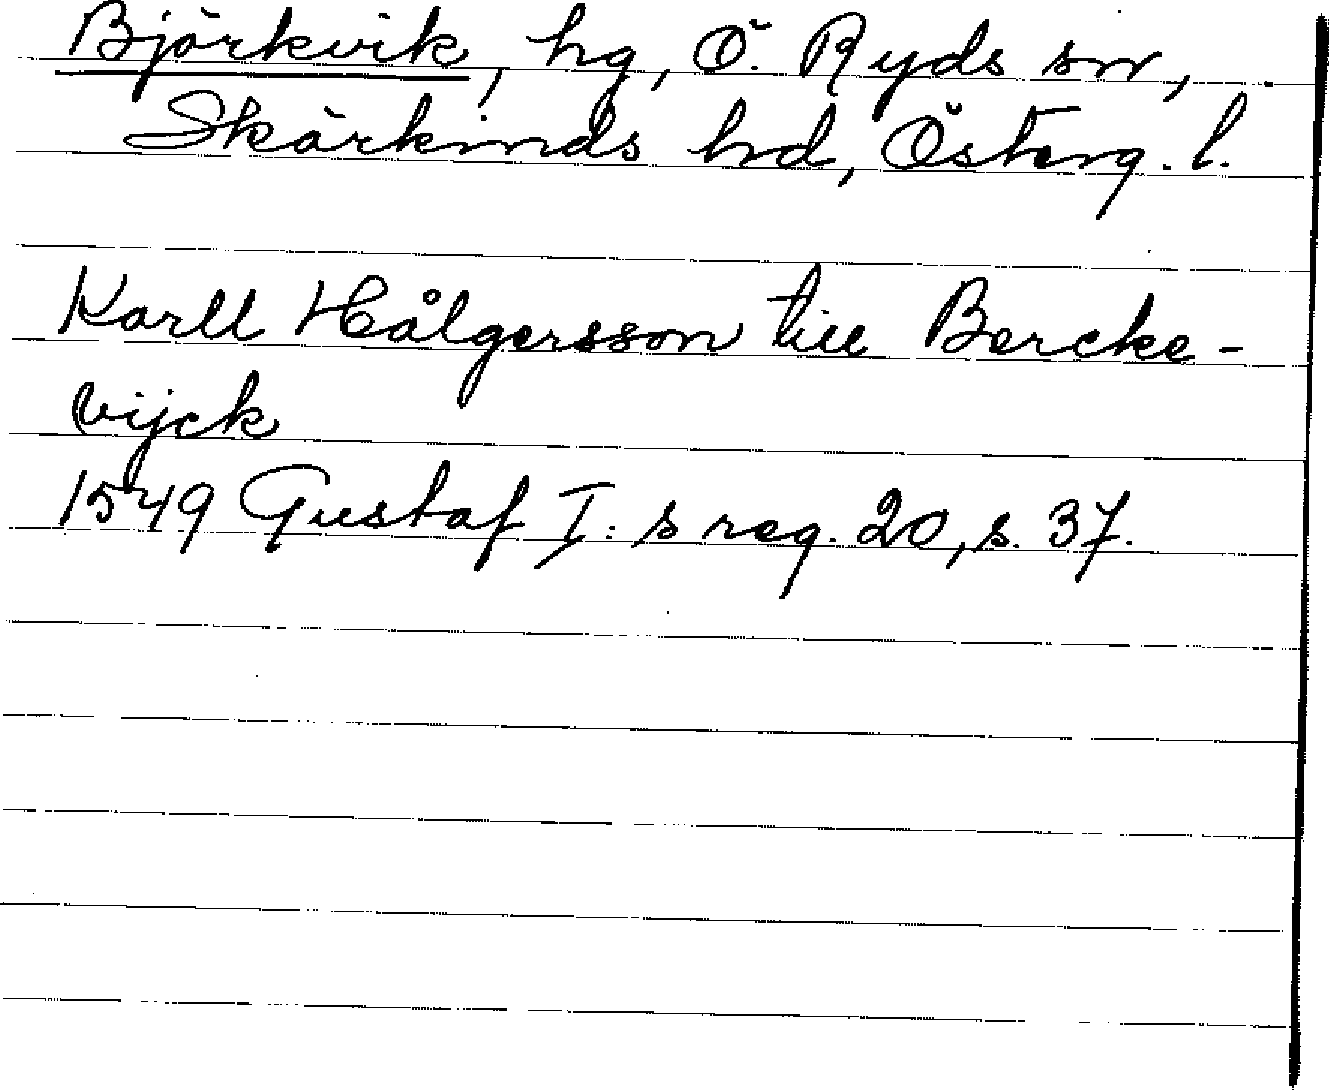 Björkvik, hg, Ö. Ryds sn,
Skärkinds hd, Österg. l.
Karll Hålgersson till Bercke-
vijck
1549 Gustaf I: s reg. 20, s. 37.